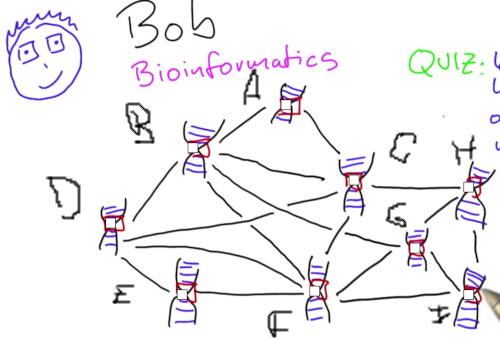 Bob
Bioinformatics
QUIZ:
A
B
C
H
D
G
E
F
I